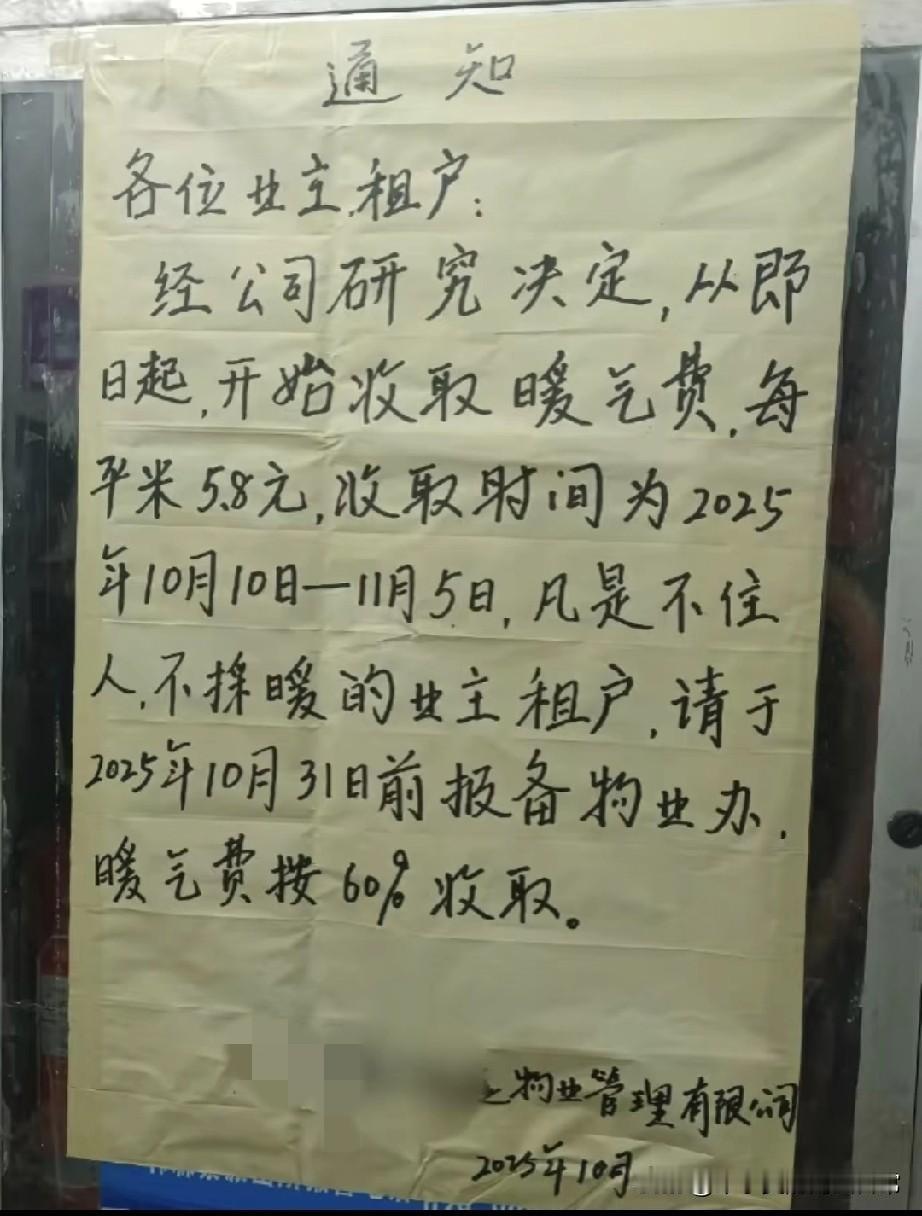 通知
各位业主.租户:
经公司研究决定,从即
日起,开始收取暖气费,每
平米5.8元,收取时间为2025
年10月10日—11月5日,凡是不住
人,不採暖的业主租户,请于
2025年10月31日前报备物业办,
暖气费按60%收取。
物业管理有限公司
2025年10月